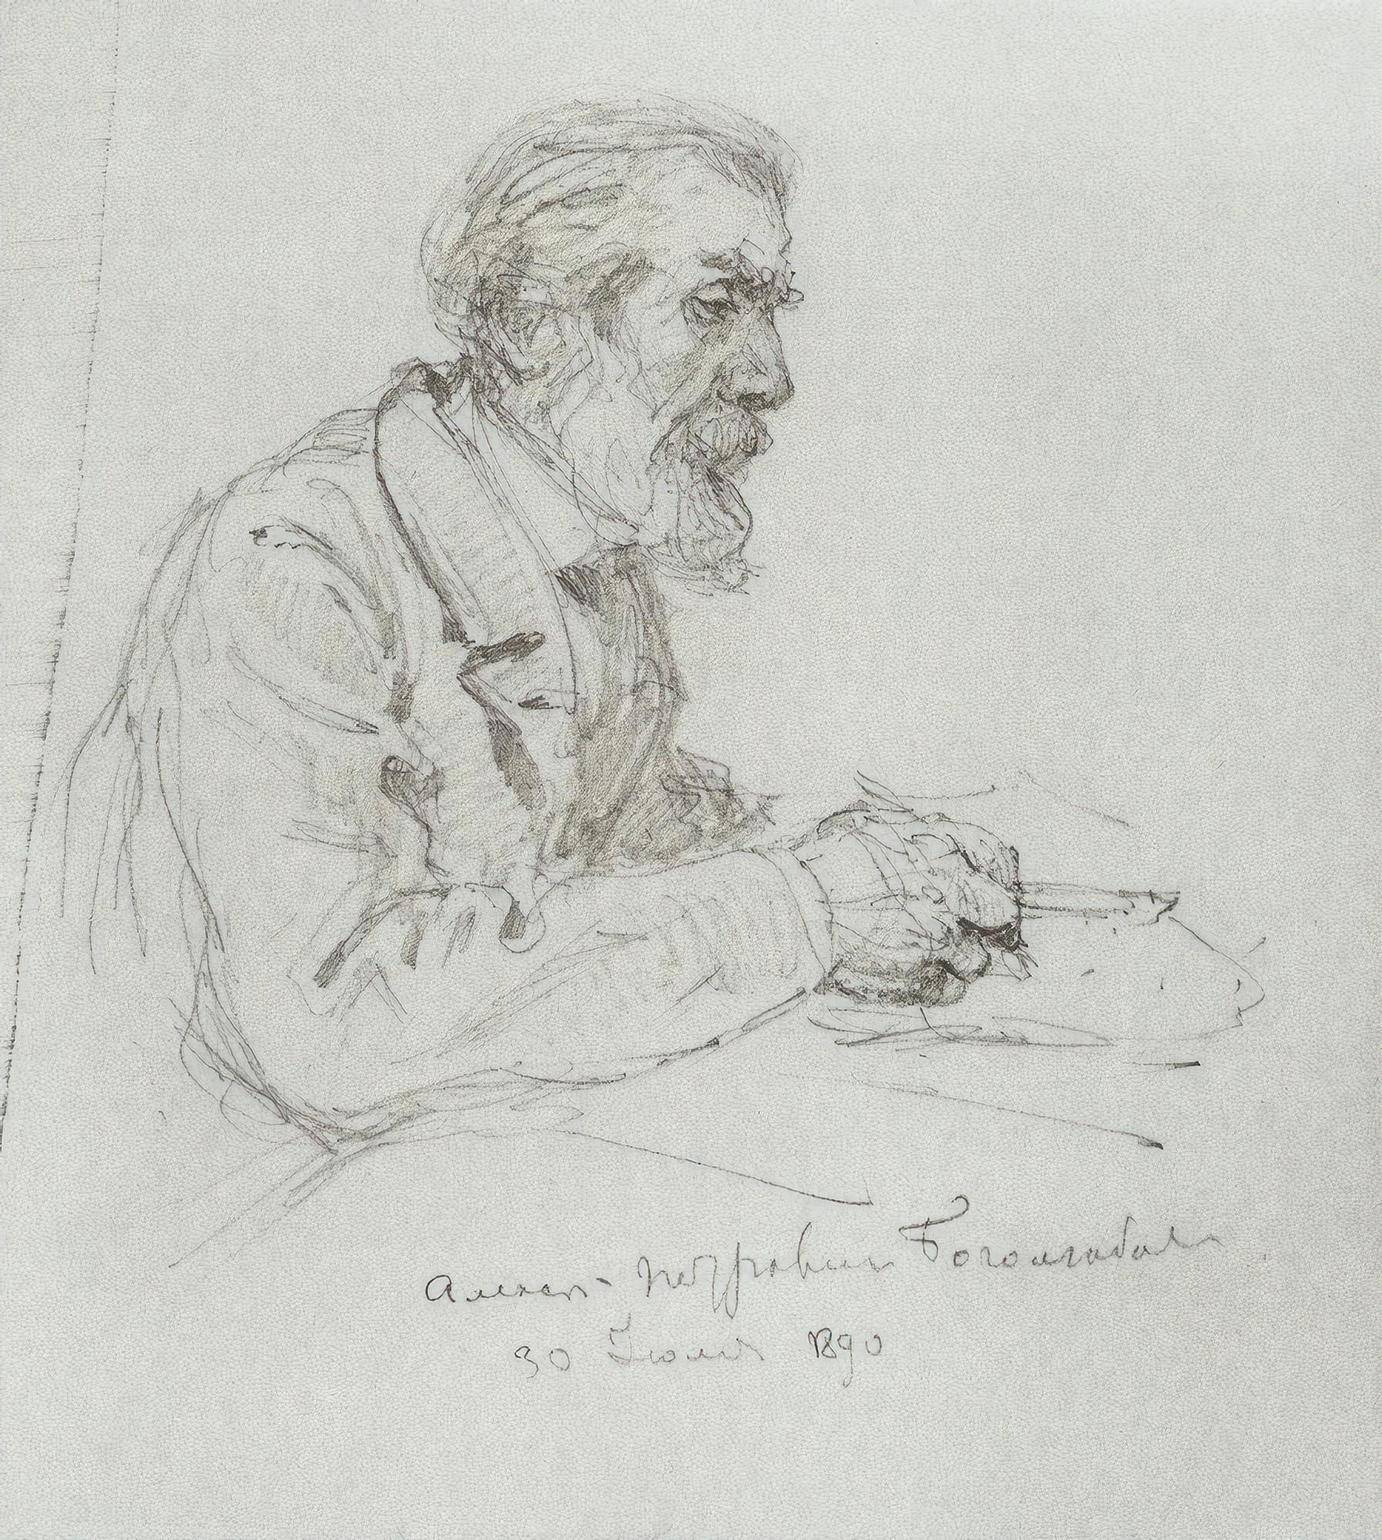 Алекс- Петрович Боголюбов
30 Июля 1890